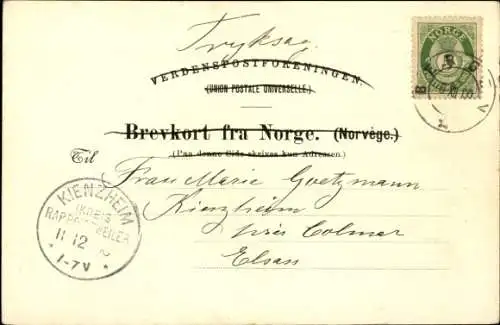 Tryksag
NORGE
VERDENSPOSTFORENINGEN.
(UNION POSTALE UNIVERSELLE.)
Brevkort fra Norge. (Norvége.)
(Paa denne Side skrives kun Adressen.)
Til
Frau Marie Goetzmann
Kienzheim
près Colmar
Elsas
KIENZHEIM
(KREIS
RAPPOLTSWEILER
11 12
1-7V